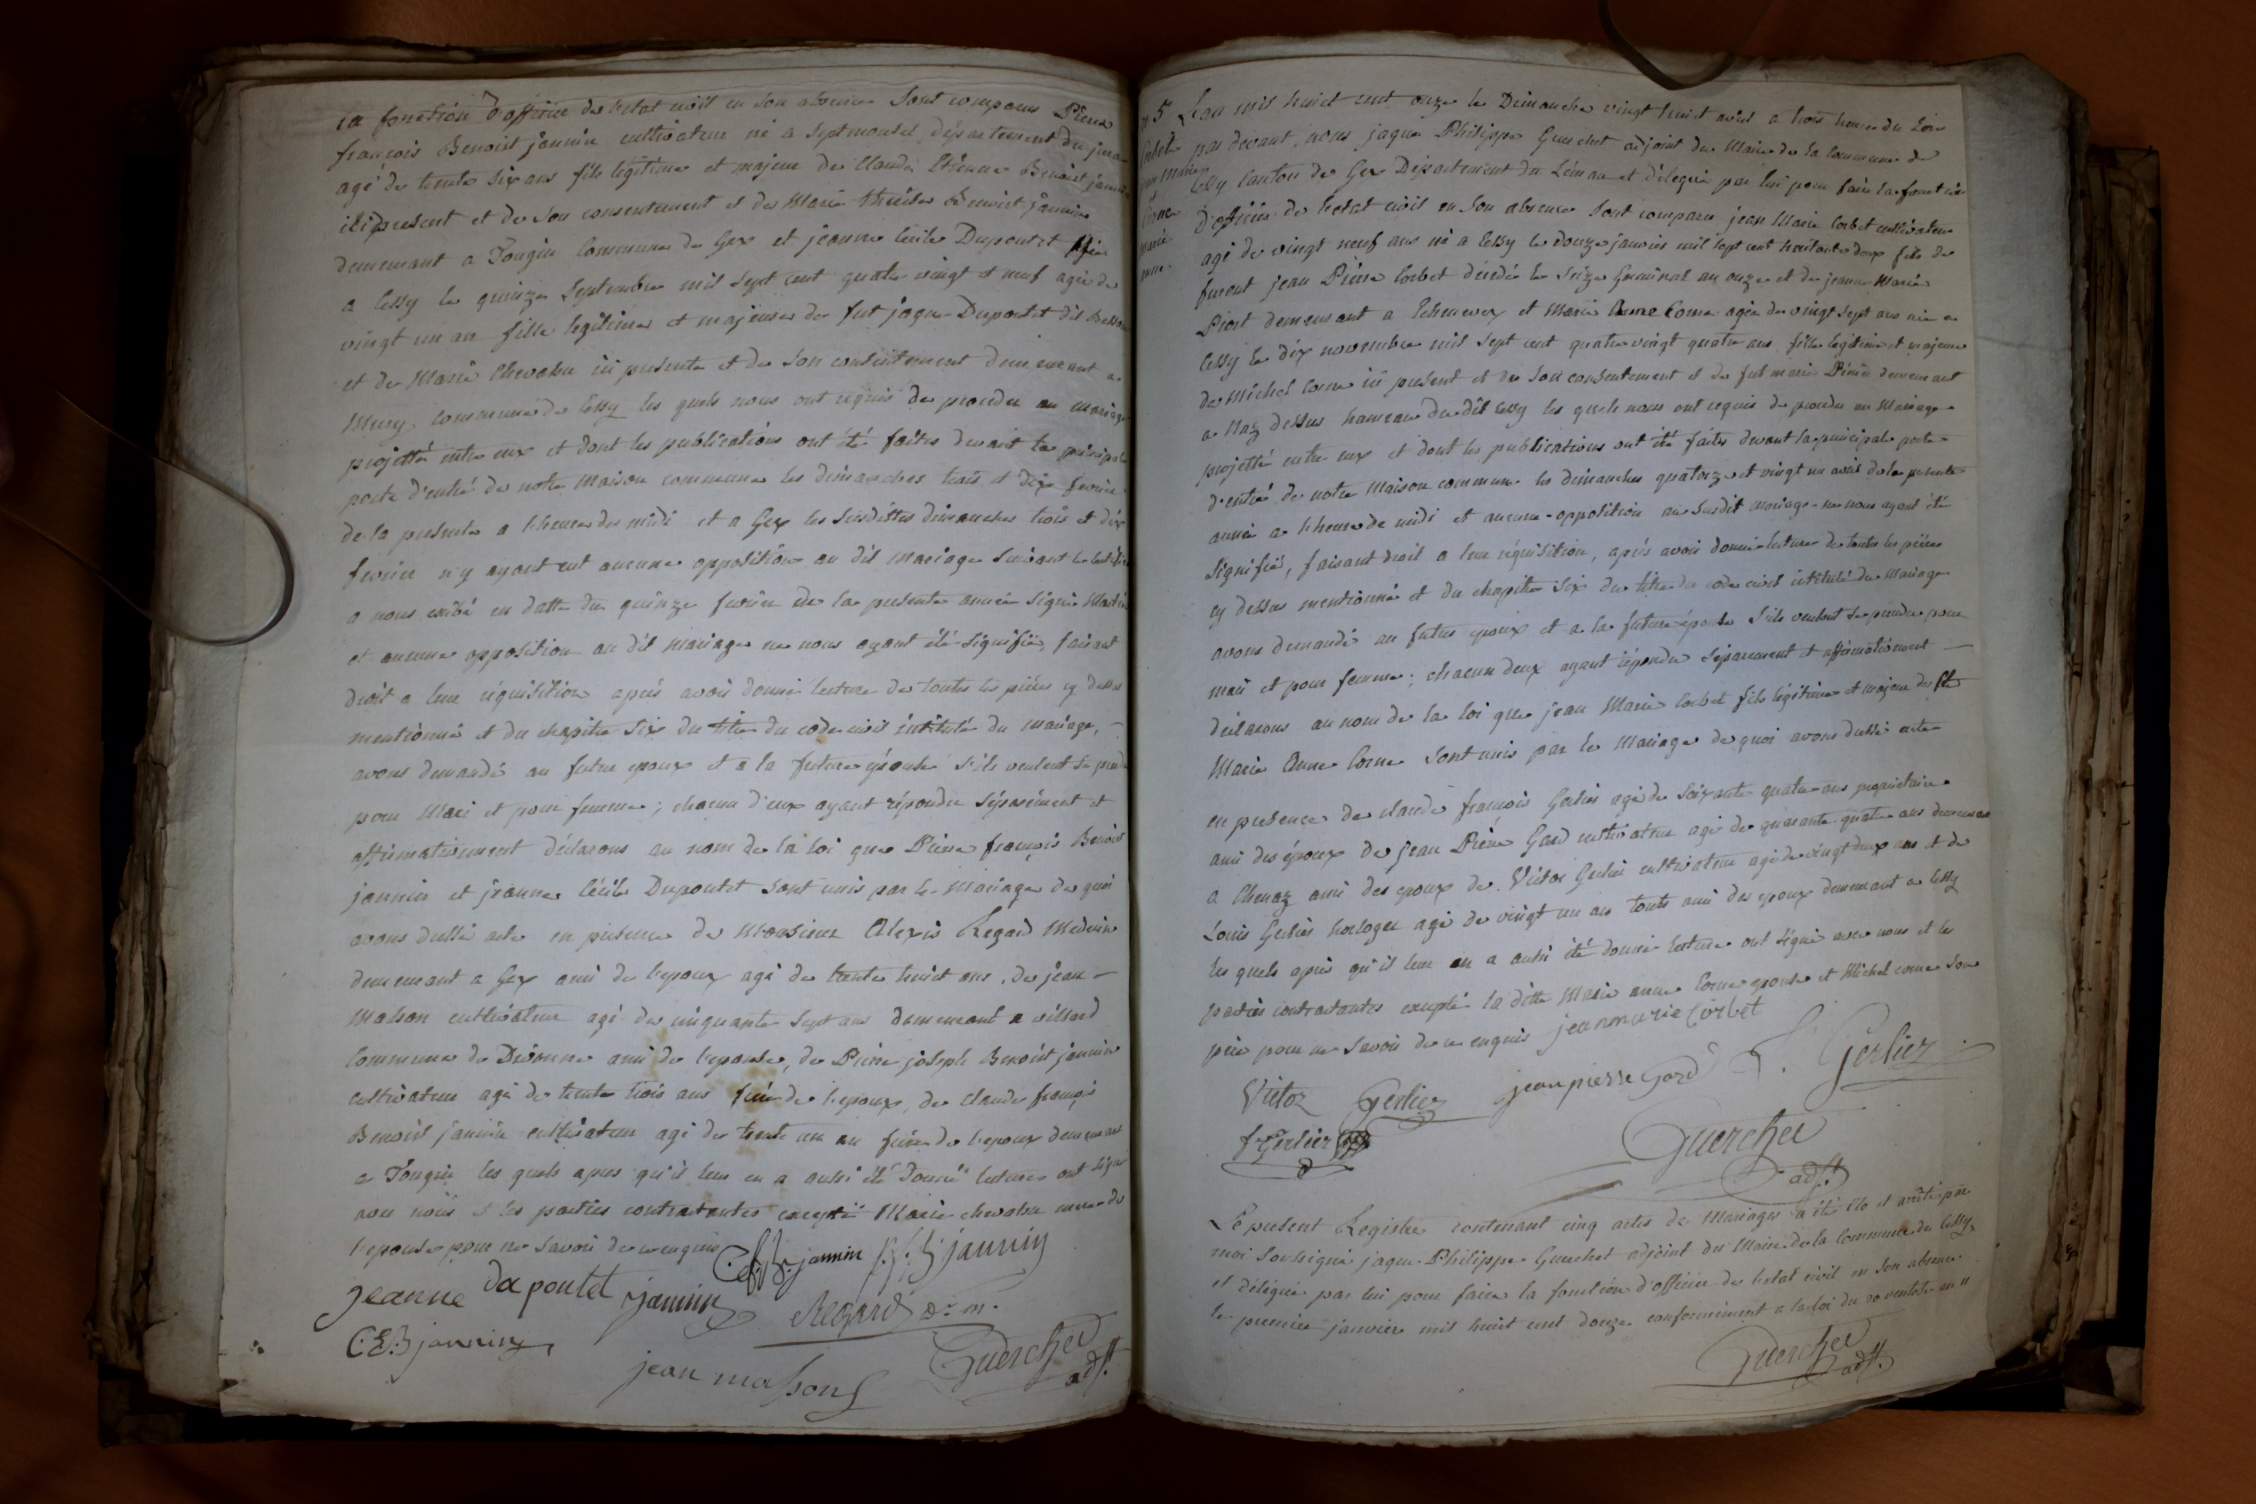 la fonction d'officier de l'etat civil en son absence sont comparus Pierre
françois Benoist jannin cultivateur né a Septmoncel département du jura
agé de trente six ans fils légitime et majeur de Claude Etienne Benoist jannin
ici présent et de son consentement et de Marie thérèse Benoist jannin
demeurant a Tougin Commune de Gex et jeanne Cécile Dupontet née
a Cessy le quinze Septembre mil sept cent quatre vingt et neuf agée de
vingt un an fille legitime et majeure de fut jaque Dupontet dit
et de Marie Chevalier ici presente et de son consentement demeurant a
Mury commune de Cessy les quels nous ont requis de proceder au mariage
projetté entre eux et dont les publications ont été faites devant la principale
porte d'entré de notre Maison commune les dimanches trois et dix fevrier
de la presente a l'heure de midi et a Gex les susdittes dimanches trois et dix
fevrier n'y ayant eut aucune opposition au dit mariage suivant le certificat
a nous exibé en datte du quinze fevrier de la presente année signé
et aucune opposition au dit mariage ne nous ayant été signifié, faisant
droit a leur réquisition aprés avoir donné lecture de toutes les pièces cy dessus
mentionné et du chapitre six du titre du code civil intitulé du mariage,
avons demandé au futur epoux et a la future épouse s'ils veulent se prendre
pour Mari et pour femme; chacun d'eux ayant répondu séparément et
affirmativement déclarons au nom de la loi que Pierre françois Benoist
jannin et jeanne Cécile Dupontet sont unis par le Mariage de quoi
avons dressé acte en présence de Monsieur Alexis Regard Medecin
demeurant a Gex ami de l'epoux agé de trente huit ans, de jean
Masson cultivateur agé de cinquante sept ans demeurant a villard
Commune de Divonne ami de l'epouse, de Pierre joseph Benoist jannin
cultivateur agé de trente trois ans frère de l'epoux, de Claude françois
Benoist jannin cultivateur agé de trente un an frère de l'epoux demeurant
a Tougin les quels apres qu'il leur en a aussi été donné lecture ont signé
avec nous et les parties contractantes excepté Marie chevalier mere de
l'epouse pour ne savoir de ce enquis C.f.B. jannin P.f.B jannin
jeanne du pontet jannin Regard D. m.
C.E.B jannin
jean masson Guerchet adjt.
5e L'an mil huit cent onze le Dimanche vingt huit avril a trois heure du soir
par devant nous jaque Philippe Guerchet adjoint du Maire de la Commune de
Cessy Canton de Gex Département du Léman et délégué par lui pour faire la fonction
D'officier de l'etat civil en son absence sont comparu jean Marie Corbet cultivateur
agé de vingt neuf ans né a Cessy le douze janvier mil sept cent huitante deux fils de
furent jean Pierre Corbet décédé le seize Germinal an onze et de jeanne Marie
demeurant a Echenevex et Marie Anne Corne agée de vingt sept ans née a
Cessy le dix novembre mil sept cent quatre vingt quatre ans fille legitime et majeure
de Michel Corne ici present et de son consentement et de fut marie Pierre demeurant
a Naz dessus hameau du dit Cessy les quels nous ont requis de proceder au Mariage
projetté entre eux et dont les publications ont été faites devant la principale porte
d'entré de notre Maison commune les dimanches quatorze et vingt un avril de la presente
année a l'heure de midi et aucune opposition au susdit mariage ne nous ayant été
signifié, faisant droit a leur réquisition, aprés avoir donné lecture de toutes les pièces
cy dessus mentionné et du chapitre six du titre du code civil intitulé du Mariage
avons demandé au futur epoux et a la future épouse s'ils veulent se prendre pour
mari et pour femme; chacun deux ayant répondu séparement et affirmativement
déclarons au nom de la loi que jean Marie Corbet fils légitime et majeur de
Marie Anne Corne sont unis par le Mariage de quoi avons dressé acte
en presence de claude françois Gerlier agé de soixante quatre ans propriétaire
ami des époux de jean Pierre Gard cultivateur agé de quarante quatre ans demeurant
a Chenaz ami des epoux de Victor Gerlier cultivateur agé de vingt deux ans et de
Louis Gerlier horloger agé de vingt un an touts ami des epoux demeurant a Cessy
les quels après qu'il leur en a aussi été donné lecture ont signé avec nous et les
parties contractantes excepté la ditte Marie anne Corne epouse et Michel corne son
père pour ne savoir de ce enquis jean marie Corbet
Victor Gerlier jean pierre Gard L. Gerlier
f Gerlier
Guerchet
adjt.
Le present Registre contenant cinq actes de Mariages a été clo et arrêté par
moi soussigné jaque Philippe Guerchet adjoint du Maire de la Commune de Cessy
et délégué par lui pour faire la fonction d'officier de l'etat civil en son absence
le premier janvier mil huit cent douze conformement a la loi du 20 ventose an 11
Guerchet
adjt.